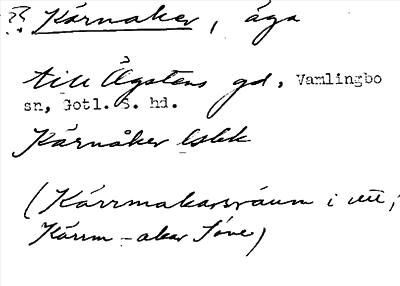 Kärnaker, äga
till Ågstens gd, Vamlingbo
sn, Gotl. S. hd.
Kärnåker lskk
(Kárrmakarsráum i
Kárrm-akar